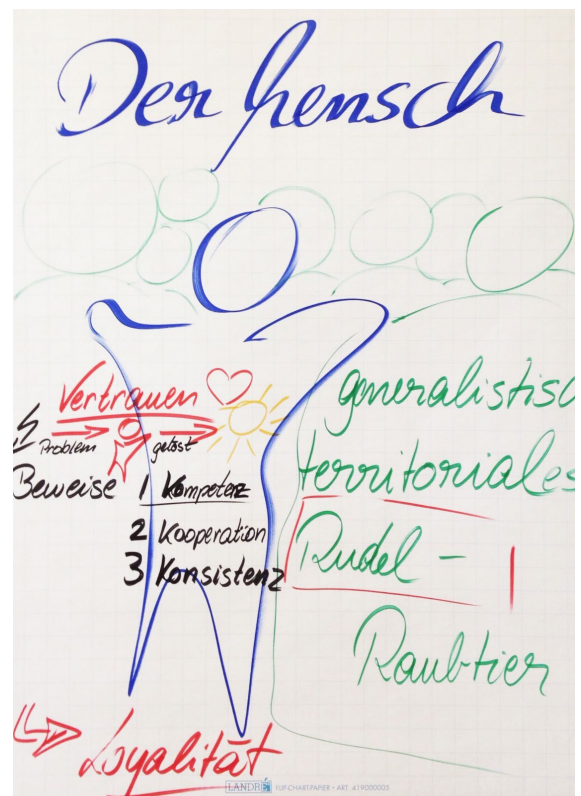 Der Mensch
Vertrauen
Problem gelöst
Beweise 1 Kompetenz
2 Kooperation
3 Konsistenz
Loyalität
generalistisc
territoriales
Rudel -
Raubtier
LANDRÉ FLIP-CHARTPAPIER • ART. 419000005